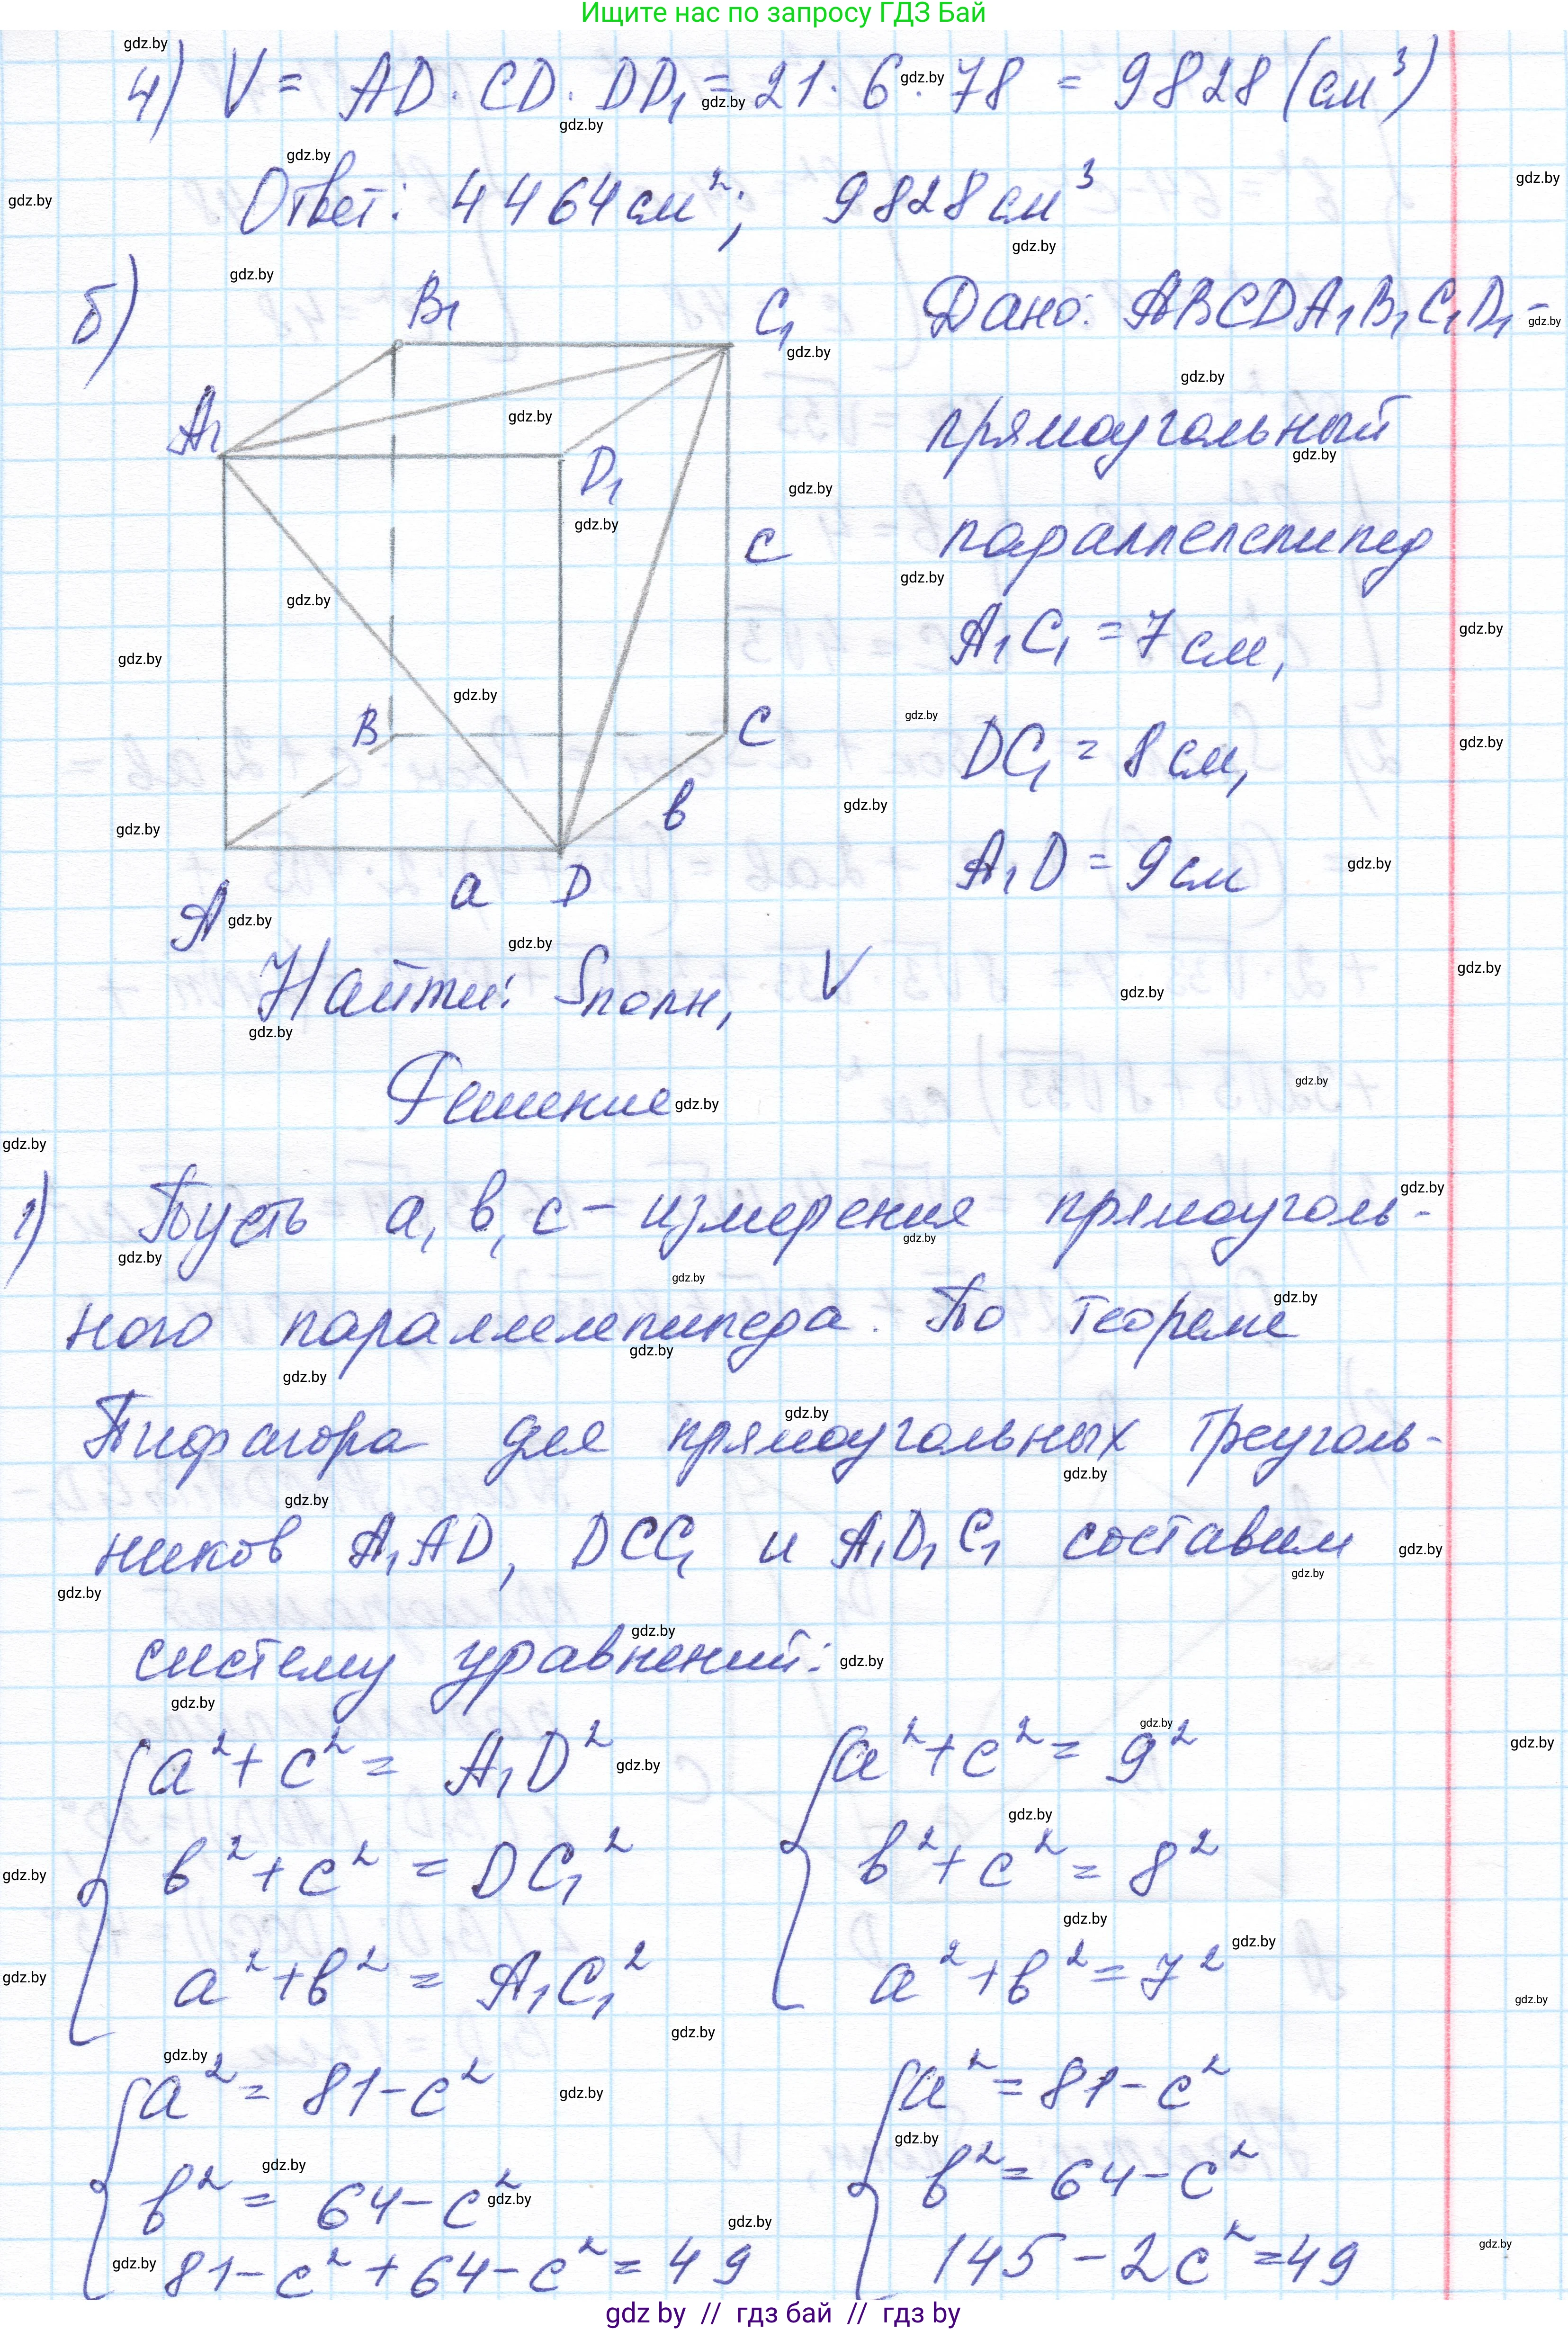 Ищите нас по запросу ГДЗ Бай
4) V = AD · CD · DD₁ = 21 · 6 · 78 = 9828 (см³)
Ответ: 4464 см²; 9828 см³
б)
B₁
C₁
A₁
D₁
c
B
C
в
A
a
D
Дано: ABCDA₁B₁C₁D₁ -
прямоугольный
параллелепипед
A₁C₁ = 7 см,
DC₁ = 8 см,
A₁D = 9 см
Найти: Sполн, V
Решение
1) Пусть a, в, c - измерения прямоуголь-
ного параллелепипеда. По теореме
Пифагора для прямоугольных треуголь-
ников A₁AD, DCC₁ и A₁D₁C₁ составим
систему уравнений:
a² + c² = A₁D²
в² + c² = DC₁²
a² + в² = A₁C₁²
a² + c² = 9²
в² + c² = 8²
a² + в² = 7²
a² = 81 - c²
в² = 64 - c²
81 - c² + 64 - c² = 49
a² = 81 - c²
в² = 64 - c²
145 - 2c² = 49
gdz by // гдз бай // гдз by